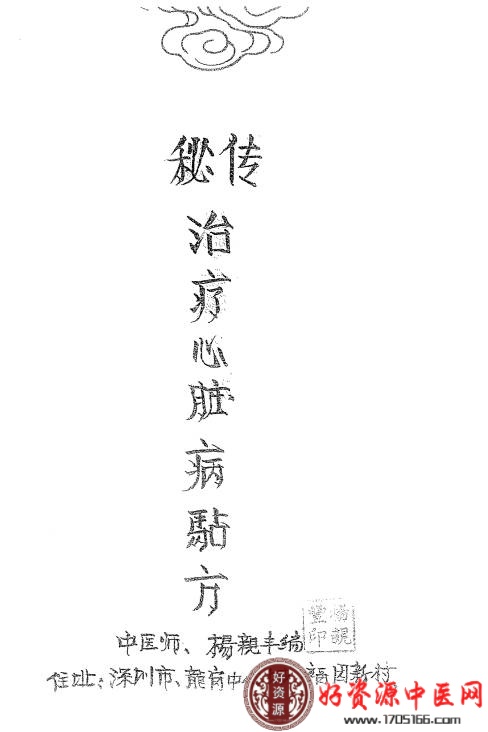 秘传
治疗心脏病方
中医师、楊親丰编
住址：深圳市、龍岗中 新村
好资源
好资源中医网
www.1705166.com